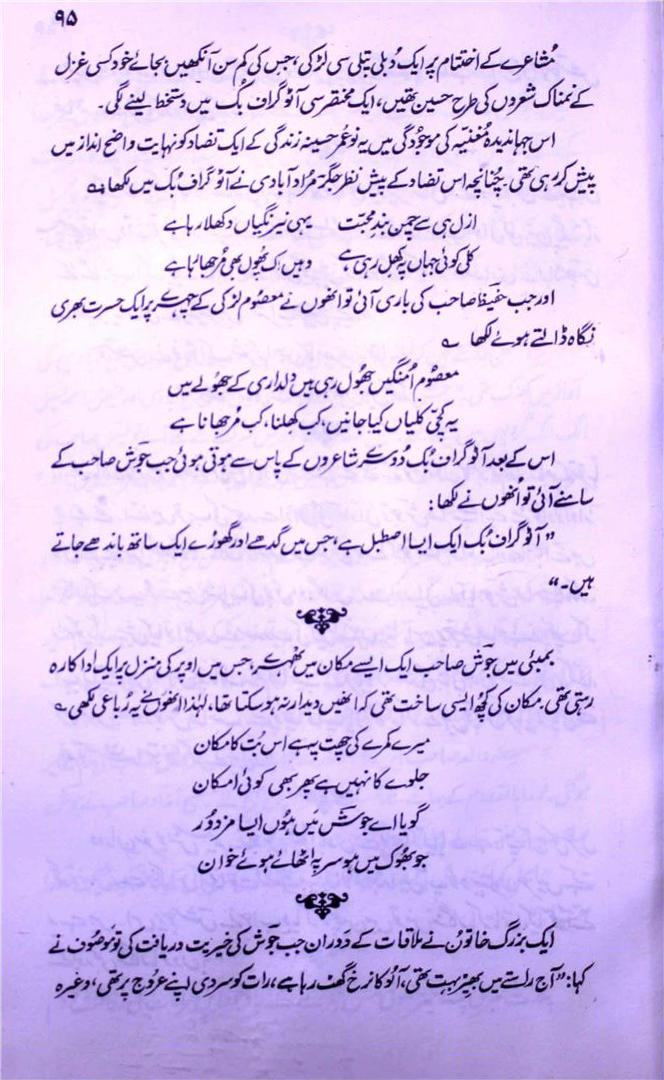 ۹۵
مُشاعرے کے اختتام پر ایک دُبلی پتلی سی لڑکی، جس کی کم سن آنکھیں بجائے خود کسی غزل
کے نمناک شعروں کی طرح حسین تھیں، ایک مختصر سی آٹوگراف بُک میں دستخط لینے لگی۔
اس جہاندیدہ مُغنّیہ کی موجودگی میں یہ نوعُمر حسینہ زندگی کے ایک تضاد کو نہایت واضح انداز میں
پیش کر رہی تھی۔ چُنانچہ اس تضاد کے پیش نظر جگرؔ مُراد آبادی نے آٹوگراف بُک میں لکھا ؎
ازل ہی سے چمن بندِ محبّت یہی نیرنگیاں دکھلا رہا ہے
کلی کوئی جہاں پہ کھِل رہی ہے وہیں اِک پھُول بھی مُرجھا رہا ہے
اور جب حفیظؔ صاحب کی باری آئی تو انھوں نے معصُوم لڑکی کے چہرے پر ایک حسرت بھری
نگاہ ڈالتے ہوئے لکھا ؎
معصُوم اُمنگیں جھُول رہی ہیں دِلداری کے جھُولے میں
یہ کچّی کلیاں کیا جانیں، کب کھِلنا، کب مُرجھانا ہے
اس کے بعد آٹوگراف بُک دُوسرے شاعروں کے پاس سے ہوتی ہوئی جب جوشؔ صاحب کے
سامنے آئی تو اُنھوں نے لکھا:
”آٹوگراف بُک ایک ایسا اصطبل ہے، جس میں گدھے اور گھوڑے ایک ساتھ باندھے جاتے
ہیں۔“
بمبئی میں جوشؔ صاحب ایک ایسے مکان میں ٹھہرے، جس میں اوپر کی منزل پر ایک اداکارہ
رہتی تھی۔ مکان کی کُچھ ایسی ساخت تھی کہ انھیں دیدار نہ ہو سکتا تھا، لہٰذا انھوں نے یہ رُباعی لکھی ؎
میرے کمرے کی چھت پہ ہے اس بُت کا مکان
جلوے کا نہیں ہے پھر بھی کوئی امکان
گویا اے جوشؔ میں ہُوں ایسا مزدُور
جو بھُوک میں ہو سر پہ اُٹھائے ہوئے خوان
ایک بزرگ خاتُون نے ملاقات کے دَوران جب جوشؔ کی خیریت دریافت کی تو موصُوف نے
کہا: ”آج راستے میں بھیڑ بہت تھی، آلُو کا نرخ گھٹ رہا ہے، رات کو سردی اپنے عروج پر تھی، وغیرہ